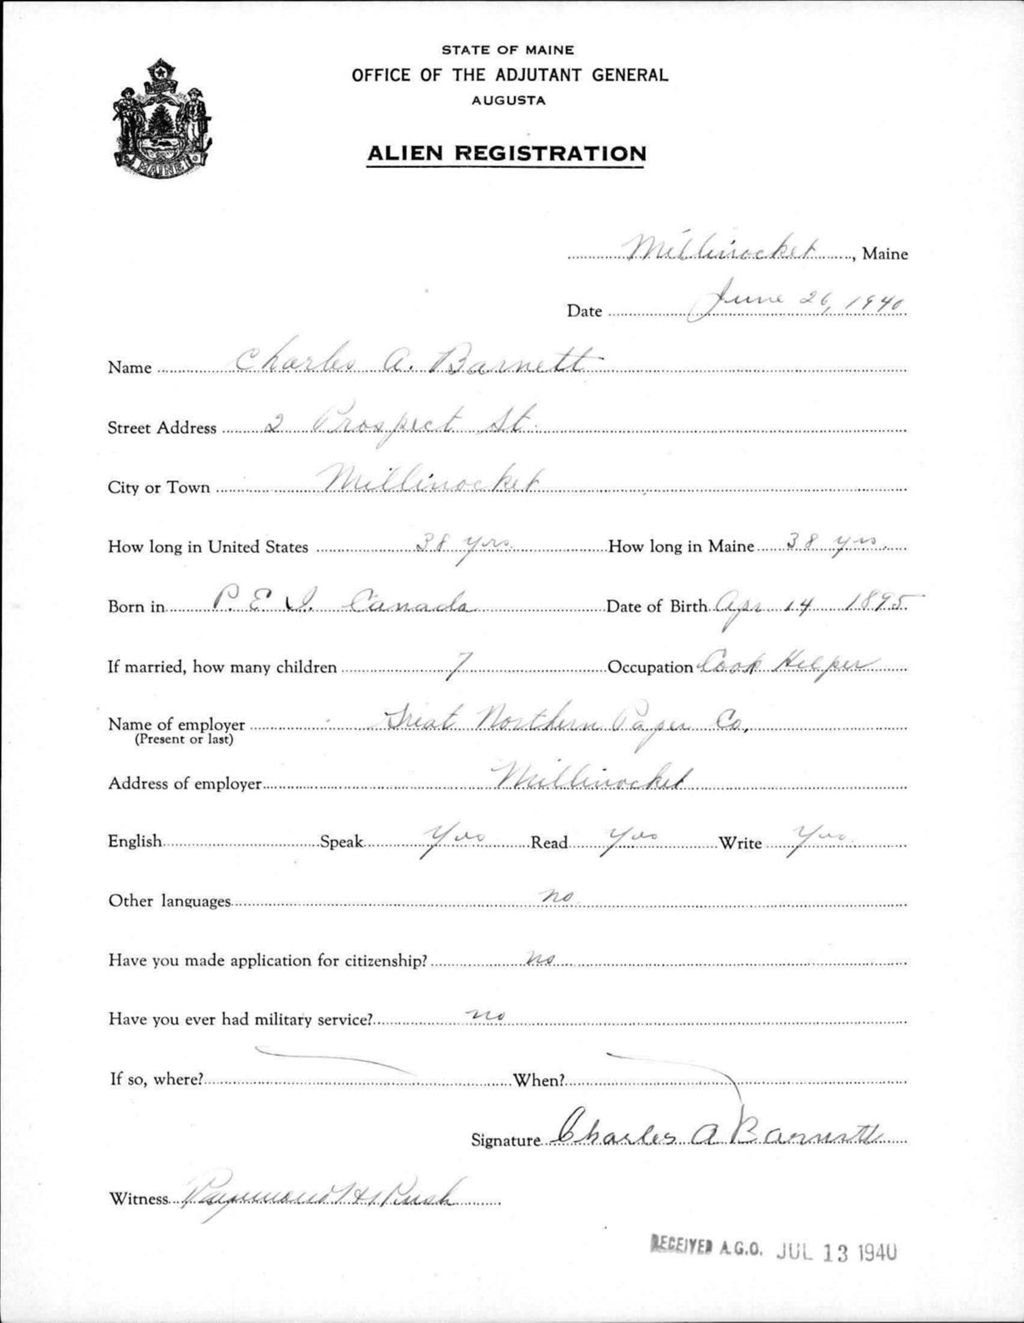 STATE OF MAINE
OFFICE OF THE ADJUTANT GENERAL
AUGUSTA
ALIEN REGISTRATION
MAINE
Millinocket, Maine
Date June 26, 1940
Name Charles A. Barnett
Street Address 2 Prospect St.
City or Town Millinocket
How long in United States 38 yrs. How long in Maine 38 yrs.
Born in P. E. I. Canada Date of Birth Apr 14 1895
If married, how many children 7 Occupation Cook Helper
Name of employer Great Northern Paper Co.
(Present or last)
Address of employer Millinocket
English Speak Yes Read Yes Write Yes
Other languages no
Have you made application for citizenship? no
Have you ever had military service? no
If so, where? When?
Signature Charles A Barnett
Witness Raymond H Rush
RECEIVED A.G.O. JUL 13 1940